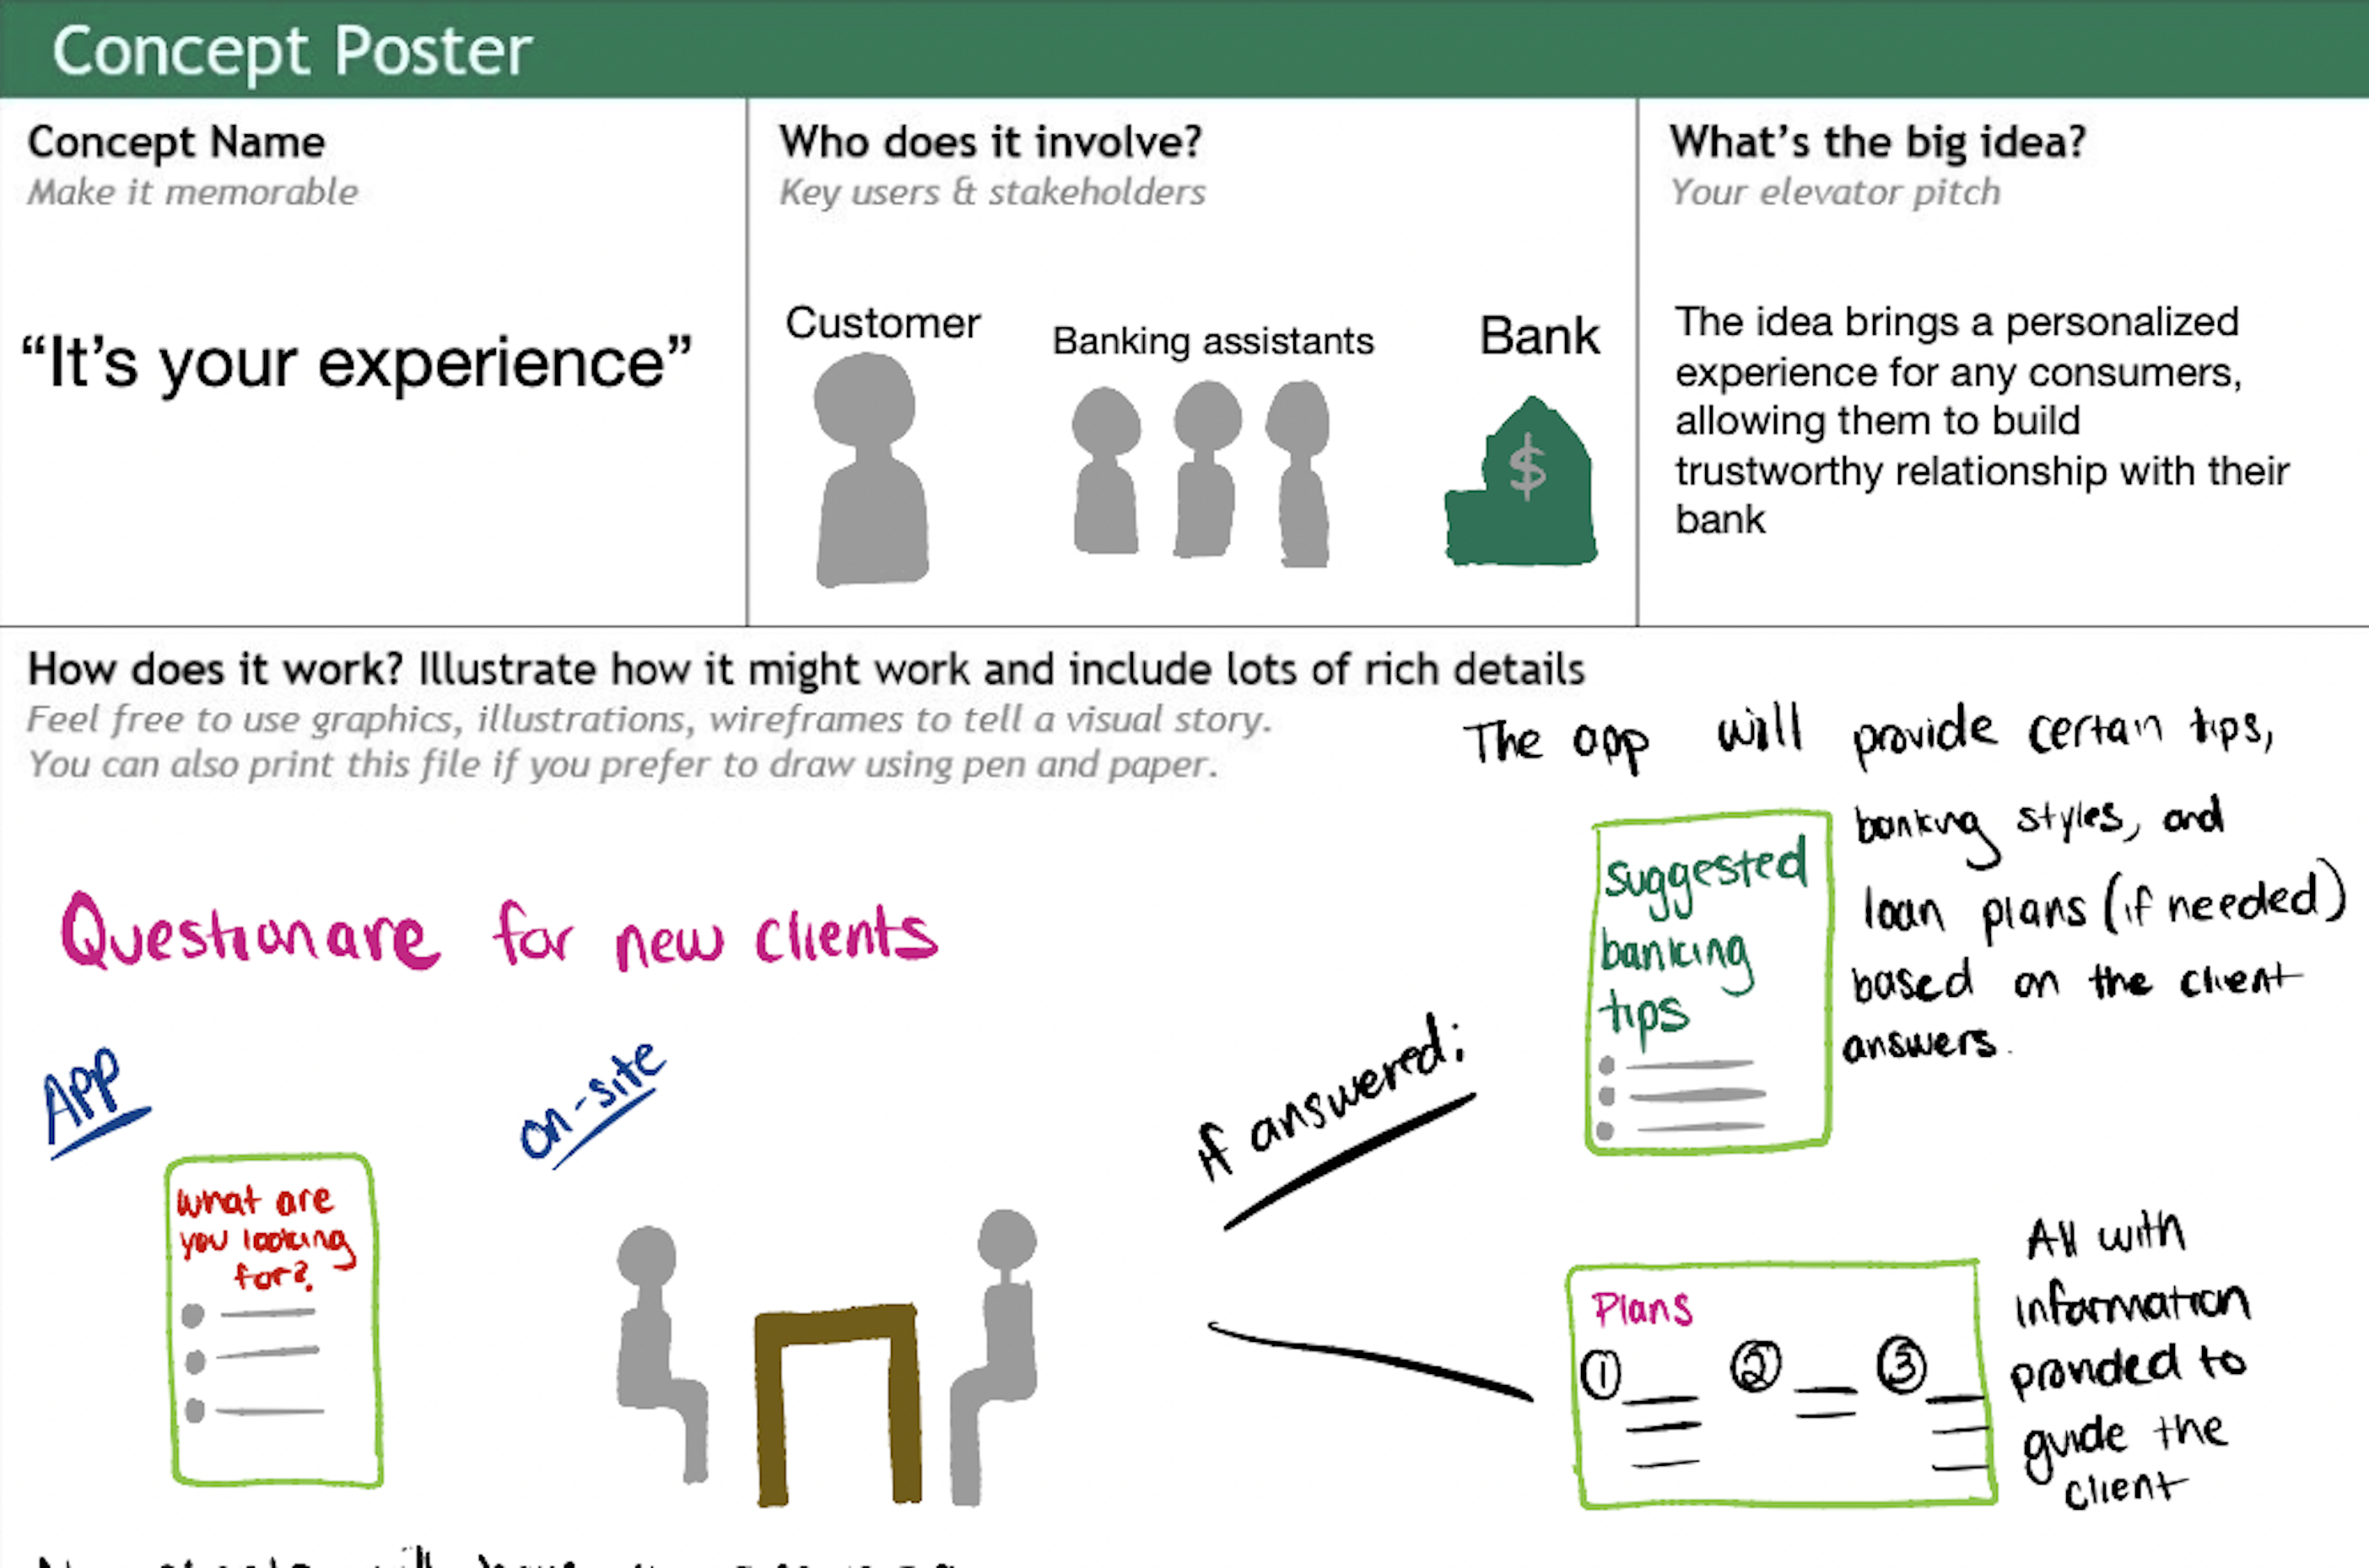 Concept Poster
Concept Name
Make it memorable
“It’s your experience”
Who does it involve?
Key users & stakeholders
Customer
Banking assistants
Bank
$
What’s the big idea?
Your elevator pitch
The idea brings a personalized
experience for any consumers,
allowing them to build
trustworthy relationship with their
bank
How does it work? Illustrate how it might work and include lots of rich details
Feel free to use graphics, illustrations, wireframes to tell a visual story.
You can also print this file if you prefer to draw using pen and paper.
Questionare for new clients
App
what are
you looking
for?
on-site
If answered:
The app will provide certain tips,
banking styles, and
loan plans (if needed)
based on the client
answers.
suggested
banking
tips
Plans
1 2 3
All with
information
provided to
guide the
client
will have